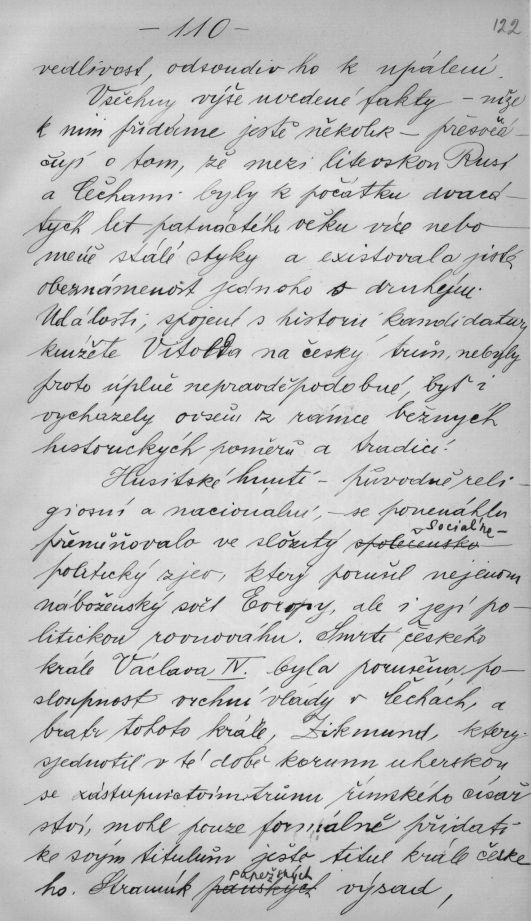 — 110 —
122
vedlivost, odsoudiv ho k upálení.
Všechny výše uvedené fakty — níže
k nim přidáme ještě několik — přesvěd-
čují o tom, že mezi litevskou Rusí
a Čechami byly k počátku dvacá-
tých let patnáctého věku více nebo
méně stálé styky a existovala jistá
obeznámenost jednoho s druhým.
Události, spojené s historií kandidatury
knížete Vitolda na český trůn, nebyly
proto úplně nepravděpodobné, byť i
vycházely ovšem z rámce běžných
historických poměrů a tradicí.
Husitské hnutí — původně reli-
giosní a nacionální, — se ponenáhlu
sociálně-
přeměňovalo ve složitý společensko
politický zjev, který porušil nejenom
náboženský svět Evropy, ale i její po-
litickou rovnováhu. Smrtí českého
krále Václava IV. byla porušena po-
sloupnost vrchní vlády v Čechách, a
bratr tohoto krále, Zikmund, který
sjednotil v té době korunu uherskou
se zástupnictvím trůnu římského císař
ství, mohl pouze formálně přidati
ke svým titulům ješto titul krále české
papežských
ho. Stranník panských výsad,